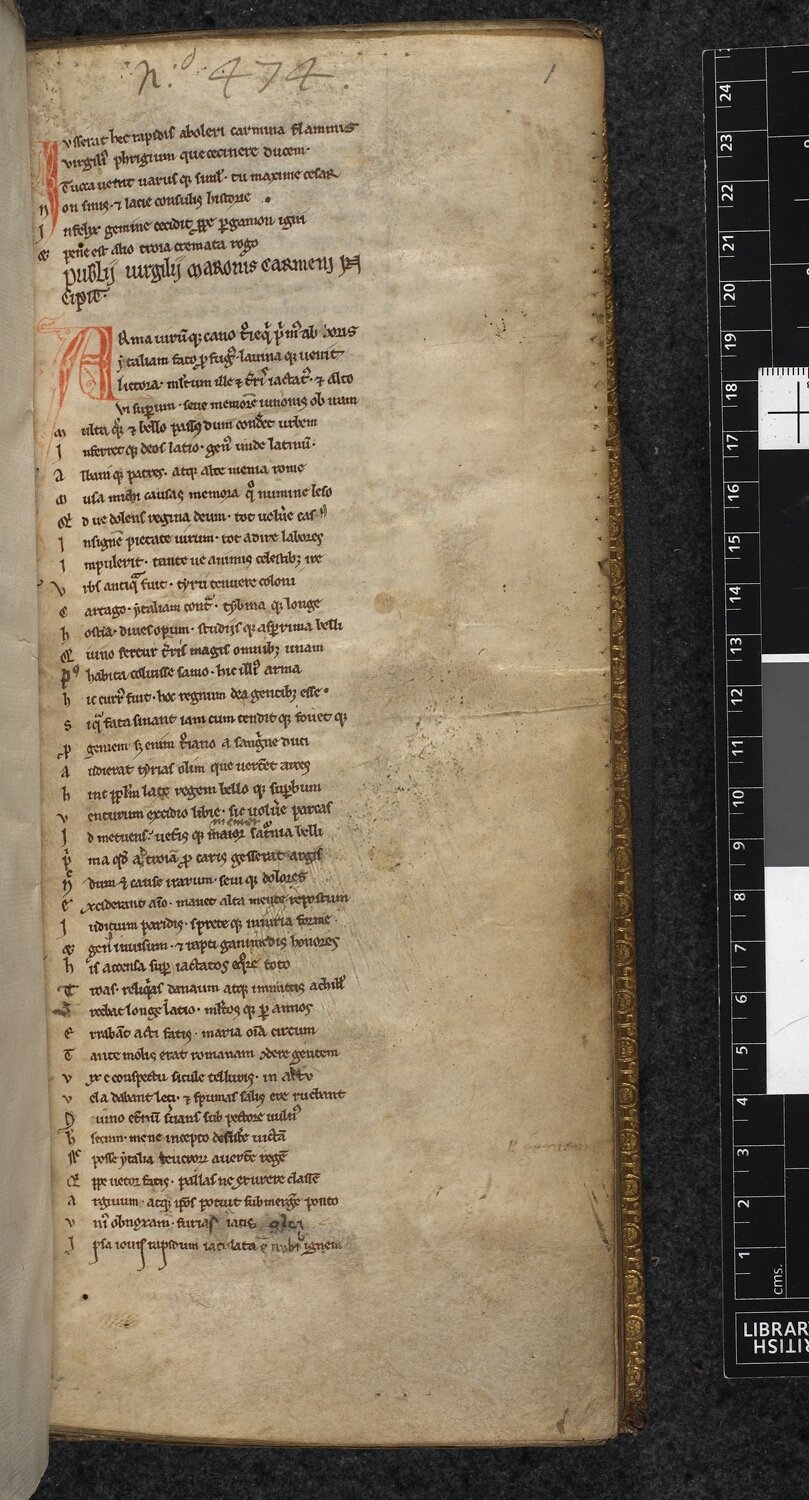 N.º 474.
1
Iusserat hec rapidis aboleri carmina flaminis
virgili phrigium que cecinere ducem
Tucca uetat uarus q simł. tu maxime cesar
n on sinis. ⁊ lacie consulis historie
I nfelix gemine cecidit ꝓpe ꝑgamon igni
⁊ pene est alio troia cremata rogo
Publij uirgilij maronis carmen iN
cipit.
ARma uirūq; cano
ytaliam fato ꝓfug9. lauina q; uenit
littora. multum ille ⁊ t̄ris iactat9. ⁊ alto
Vi suꝑum. seue memorē iunonis ob iram
m ulta q; ⁊ bello passus dum conderet urbem
I nferret q; deos latio. gen9 unde latinū.
A lbani q; patres. atq; alte menia rome
m usa michi causas memora q̊ numine leso
Q d ue dolens regina deum. tot uoluere cas9
I nsignē pietate uirum. tot adire labores
I mpulerit. tante ne animis celestib; ire
V rbs antiq̄ fuit. tyrii tenuere coloni
C artago. ytaliam contra. tybrina q; longe
h ostia. diues opum. studijs q; asperrima belli
Q uino fertur t̄ris magis omnib; unam
P9 habita coluisse samo. hic illi9 arma
h ic curr9 fuit. hoc regnum dea gentib; esse.
S iq̄ fata sinant iam cum tendit q; fouet q;
P geniem s; enim t̄iano a sanguine duci
A udierat tyrias olim que uerteret arces
h inc ppl̄m late regem bello q; suꝑbum
V enturum excidio libie. sic uoluere parcas
memor
I d metuens. uet̄is q; maior sat̄nia belli
P ma qđ ad troiā ꝓ caris gesserat argis
N dum ⁊ cause irarum. seui q; dolores
E xciderant aīo. manet alta mente repostum
I udicium paridis. sprete q; iniuria forme.
⁊ gen9 inuisum. ⁊ rapti ganimedis honores
h is accensa suꝑ iactatos eq̄re toto
T roas. reliq̄as danaum atq; inmitis achilł
A rcebat longe latio. ml̄tos q; ꝑ annos
E rrabāt acti fatis. maria oīa circum
T ante molis erat romanam ɔdere gentem
V ix e conspectu sicule telluris. in altū
V ela dabant leti. ⁊ spumas salis ere ruebant
C uino et̄nū sub pectore uuln9
h secum. mene incepto desiste uictā
N posse ytalia teucrorū auerte regē
Q ppe uetor fatis. pallas ne exurere classē
A rgiuum. atq; ipos potuit submerge ponto
V ni9 ob noxam. furias iacis
I psa iouis rapidum iaculata e nubib; ignem
24 23 22 21 20 19 18 17 16 15 14 13 12 11 10 9 8 7 6 5 4 3 2 1 cms.
LIBRAR
BRITISH